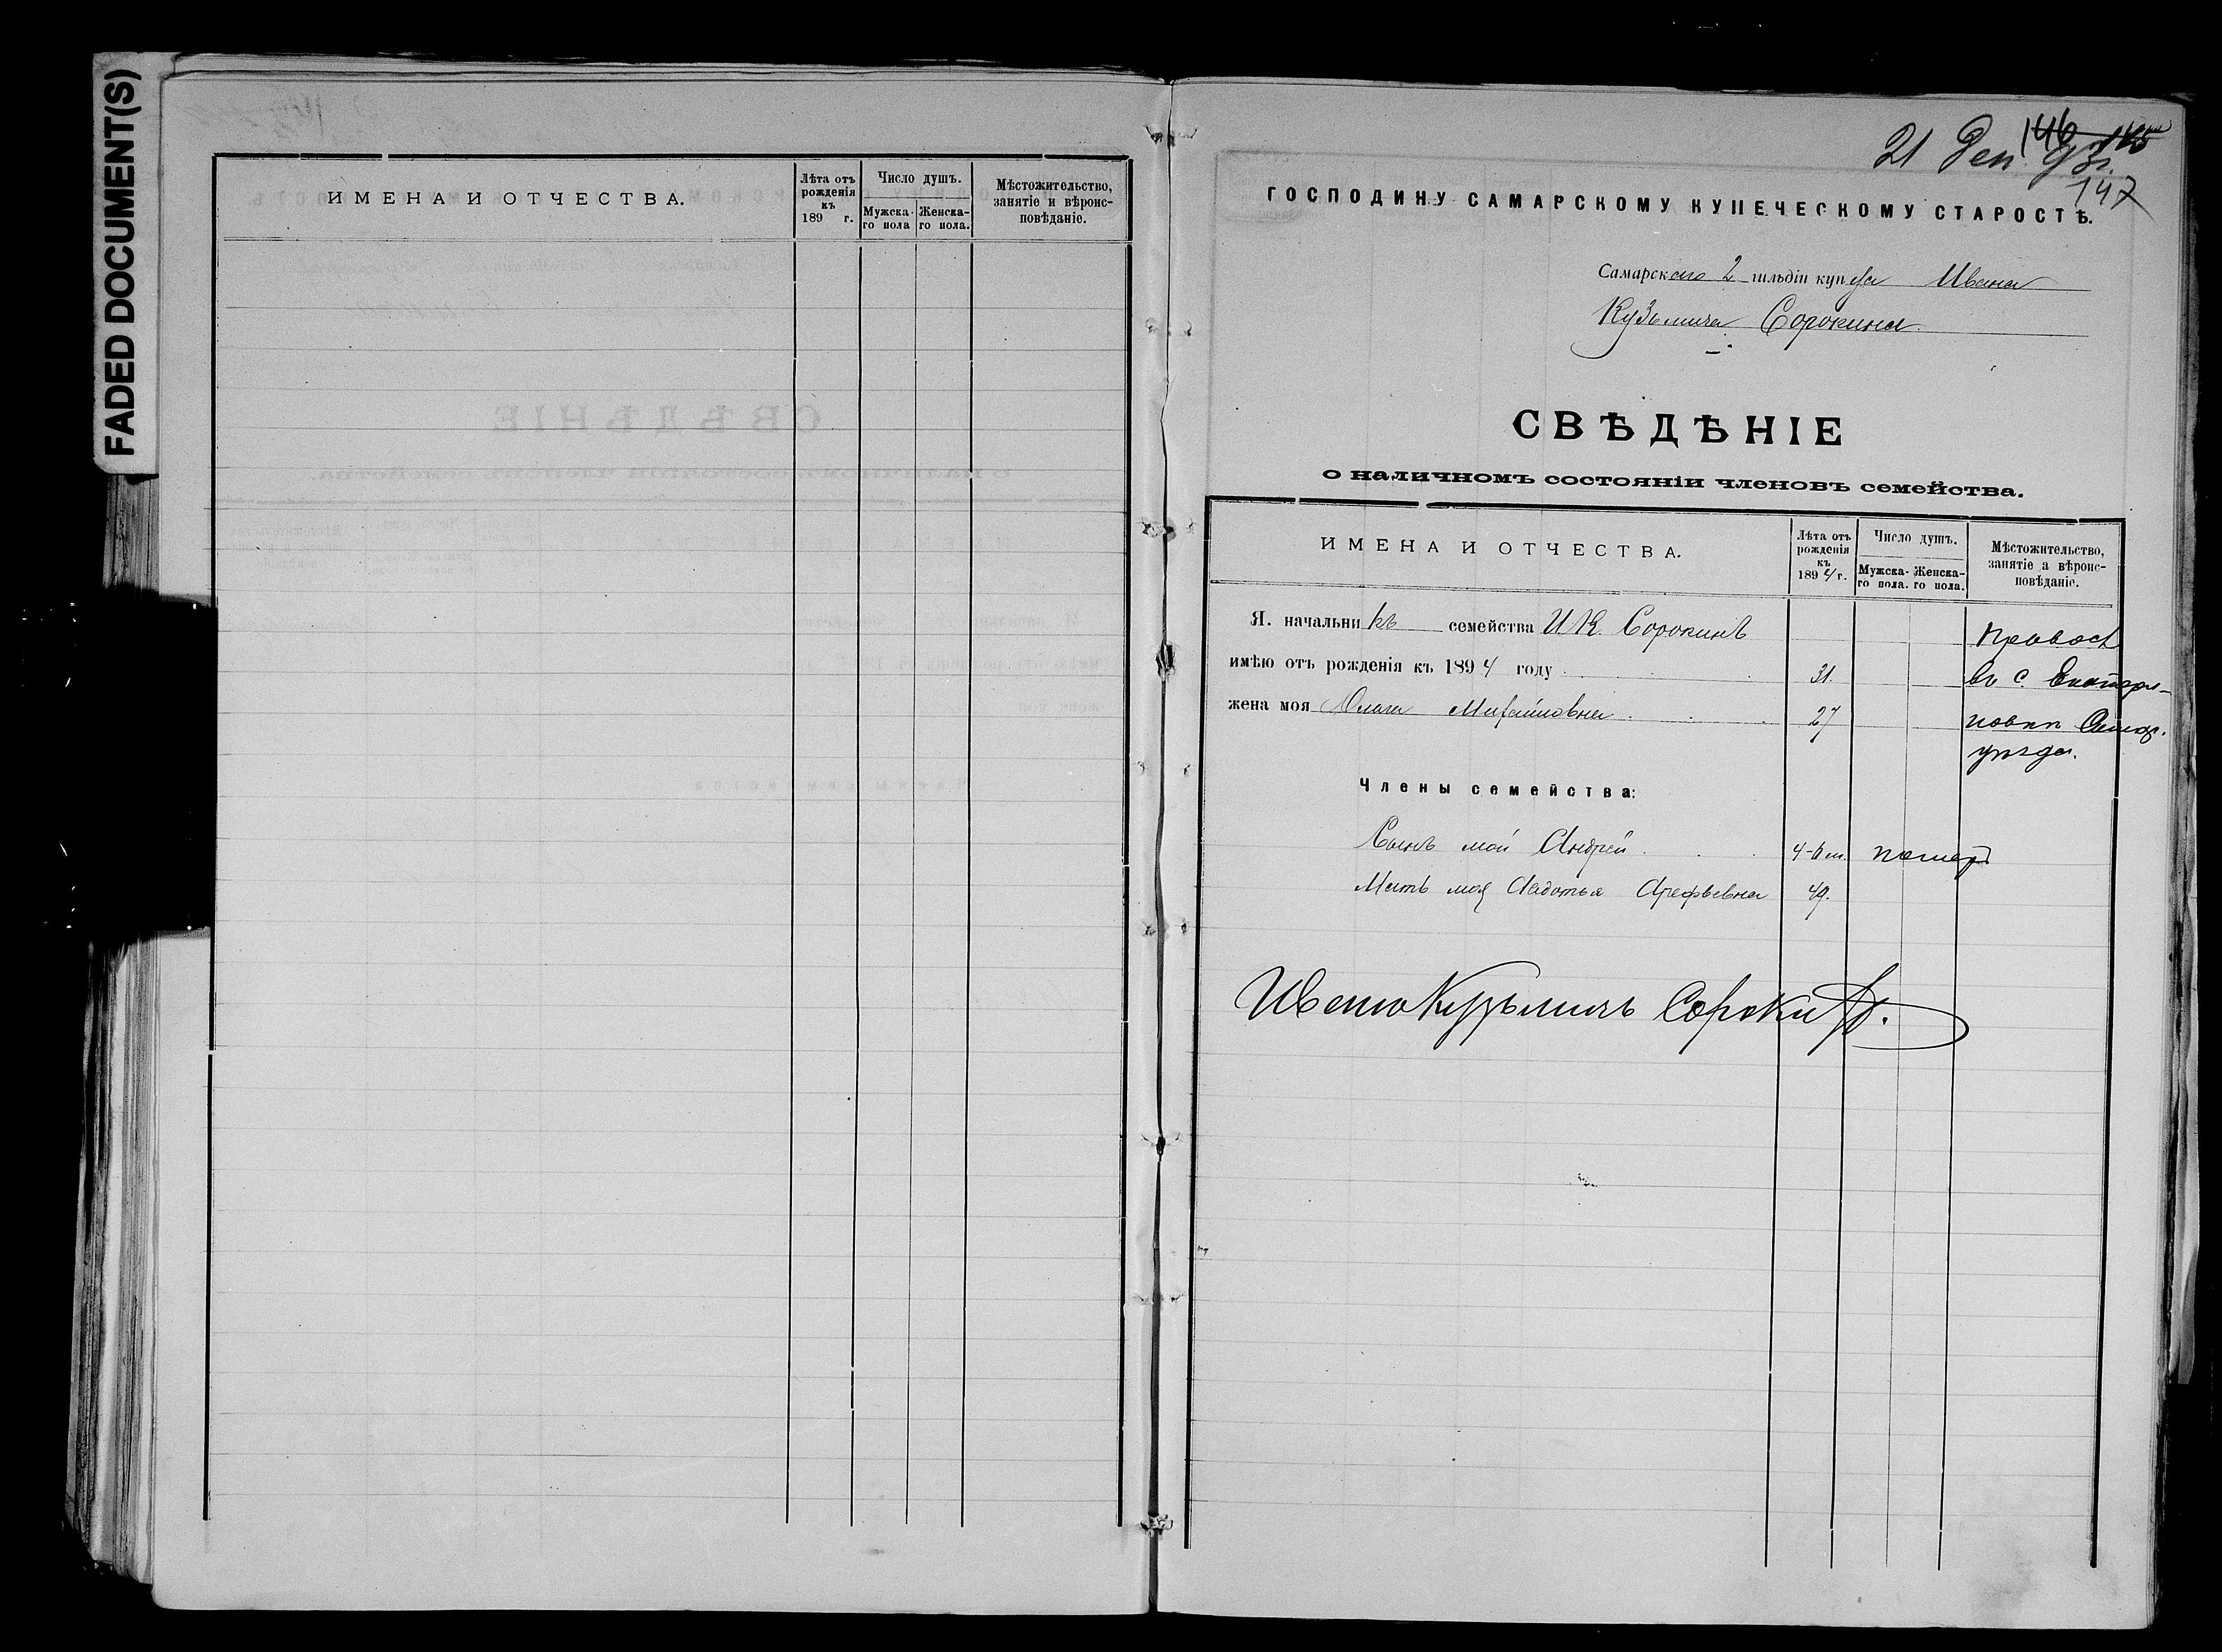 FADED DOCUMENT(S)
ИМЕНА И ОТЧЕСТВА.
Лѣта отъ рожденія къ 189 г.
Число душъ.
Мужска-го пола
Женска-го пола.
Мѣстожительство, занятіе и вѣроис-повѣданіе.
146 145
21 Дек. 93 г.
147
ГОСПОДИНУ САМАРСКОМУ КУПЕЧЕСКОМУ СТАРОСТѢ.
Самарскаго 2 гильдіи купца Ивана
Кузьмича Сорокина
СВѢДѢНІЕ
о наличномъ состояніи членовъ семейства.
ИМЕНА И ОТЧЕСТВА.
Лѣта отъ рожденія къ 1894 г.
Число душъ.
Мужска-го пола.
Женска-го пола.
Мѣстожительство, занятіе а вѣроис-повѣданіе.
Я. начальникъ семейства И. К. Сорокинъ
Правосл
имѣю отъ рожденія къ 1894 году 31.
въ с. Екатери-
жена моя Ольга Михайловна 27
новки Самар.
уѣзда.
Члены семейства:
Сынъ мой Андрей 4-6 м. померъ
Мать моя Авдотья Арефьевна 49.
Иванъ Кузьмичъ Сорокинъ.